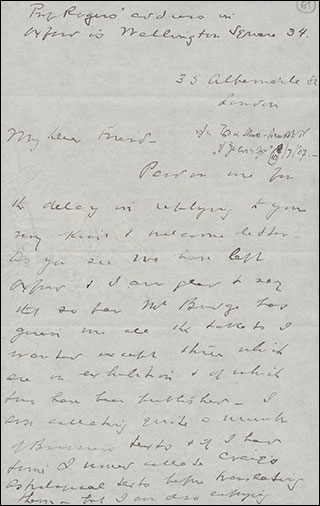 Prof Rogers' address in
Oxford is Wellington Square 34.
35 Albemarle St
London
My dear Friend -
Pardon me for
the delay in replying to your
very kind & welcome letter.
As you see we have left
Oxford & I am glad to say
that so far Mr Budge has
given me all the tablets I
wanted except three which
are on exhibition & of which
two have been published - I
am collating quite a number
of Business texts & if I have
time I moreover collate Craig's
astrological texts before translating
them - but I am also copying